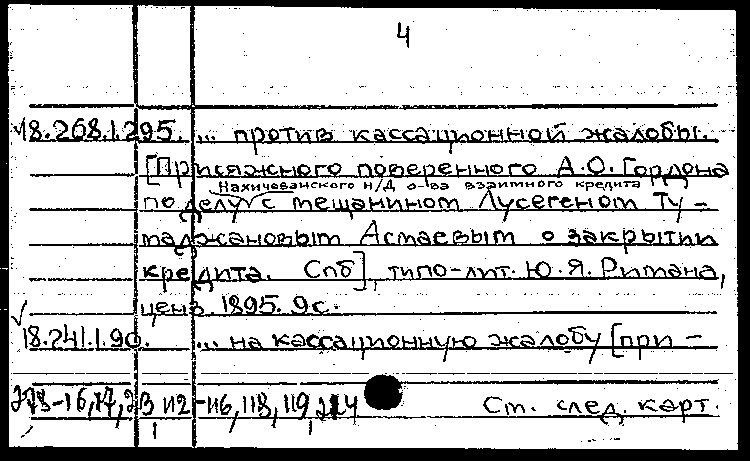 4
18.268.1.295. ... против кассационной жалобы.
[Присяжного поверенного А.О. Гордона
Нахичеванского н/Д о-ва взаимного кредита
по делу с мещанином Лусегеном Ту-
маджановым Асмаевым о закрытии
кредита. Спб], типо-лит. Ю.Я. Римана,
ценз. 1895. 9с.
18.241.1.90. ... на кассационную жалобу [при-
112-116, 118, 119,
Ст. след. карт.